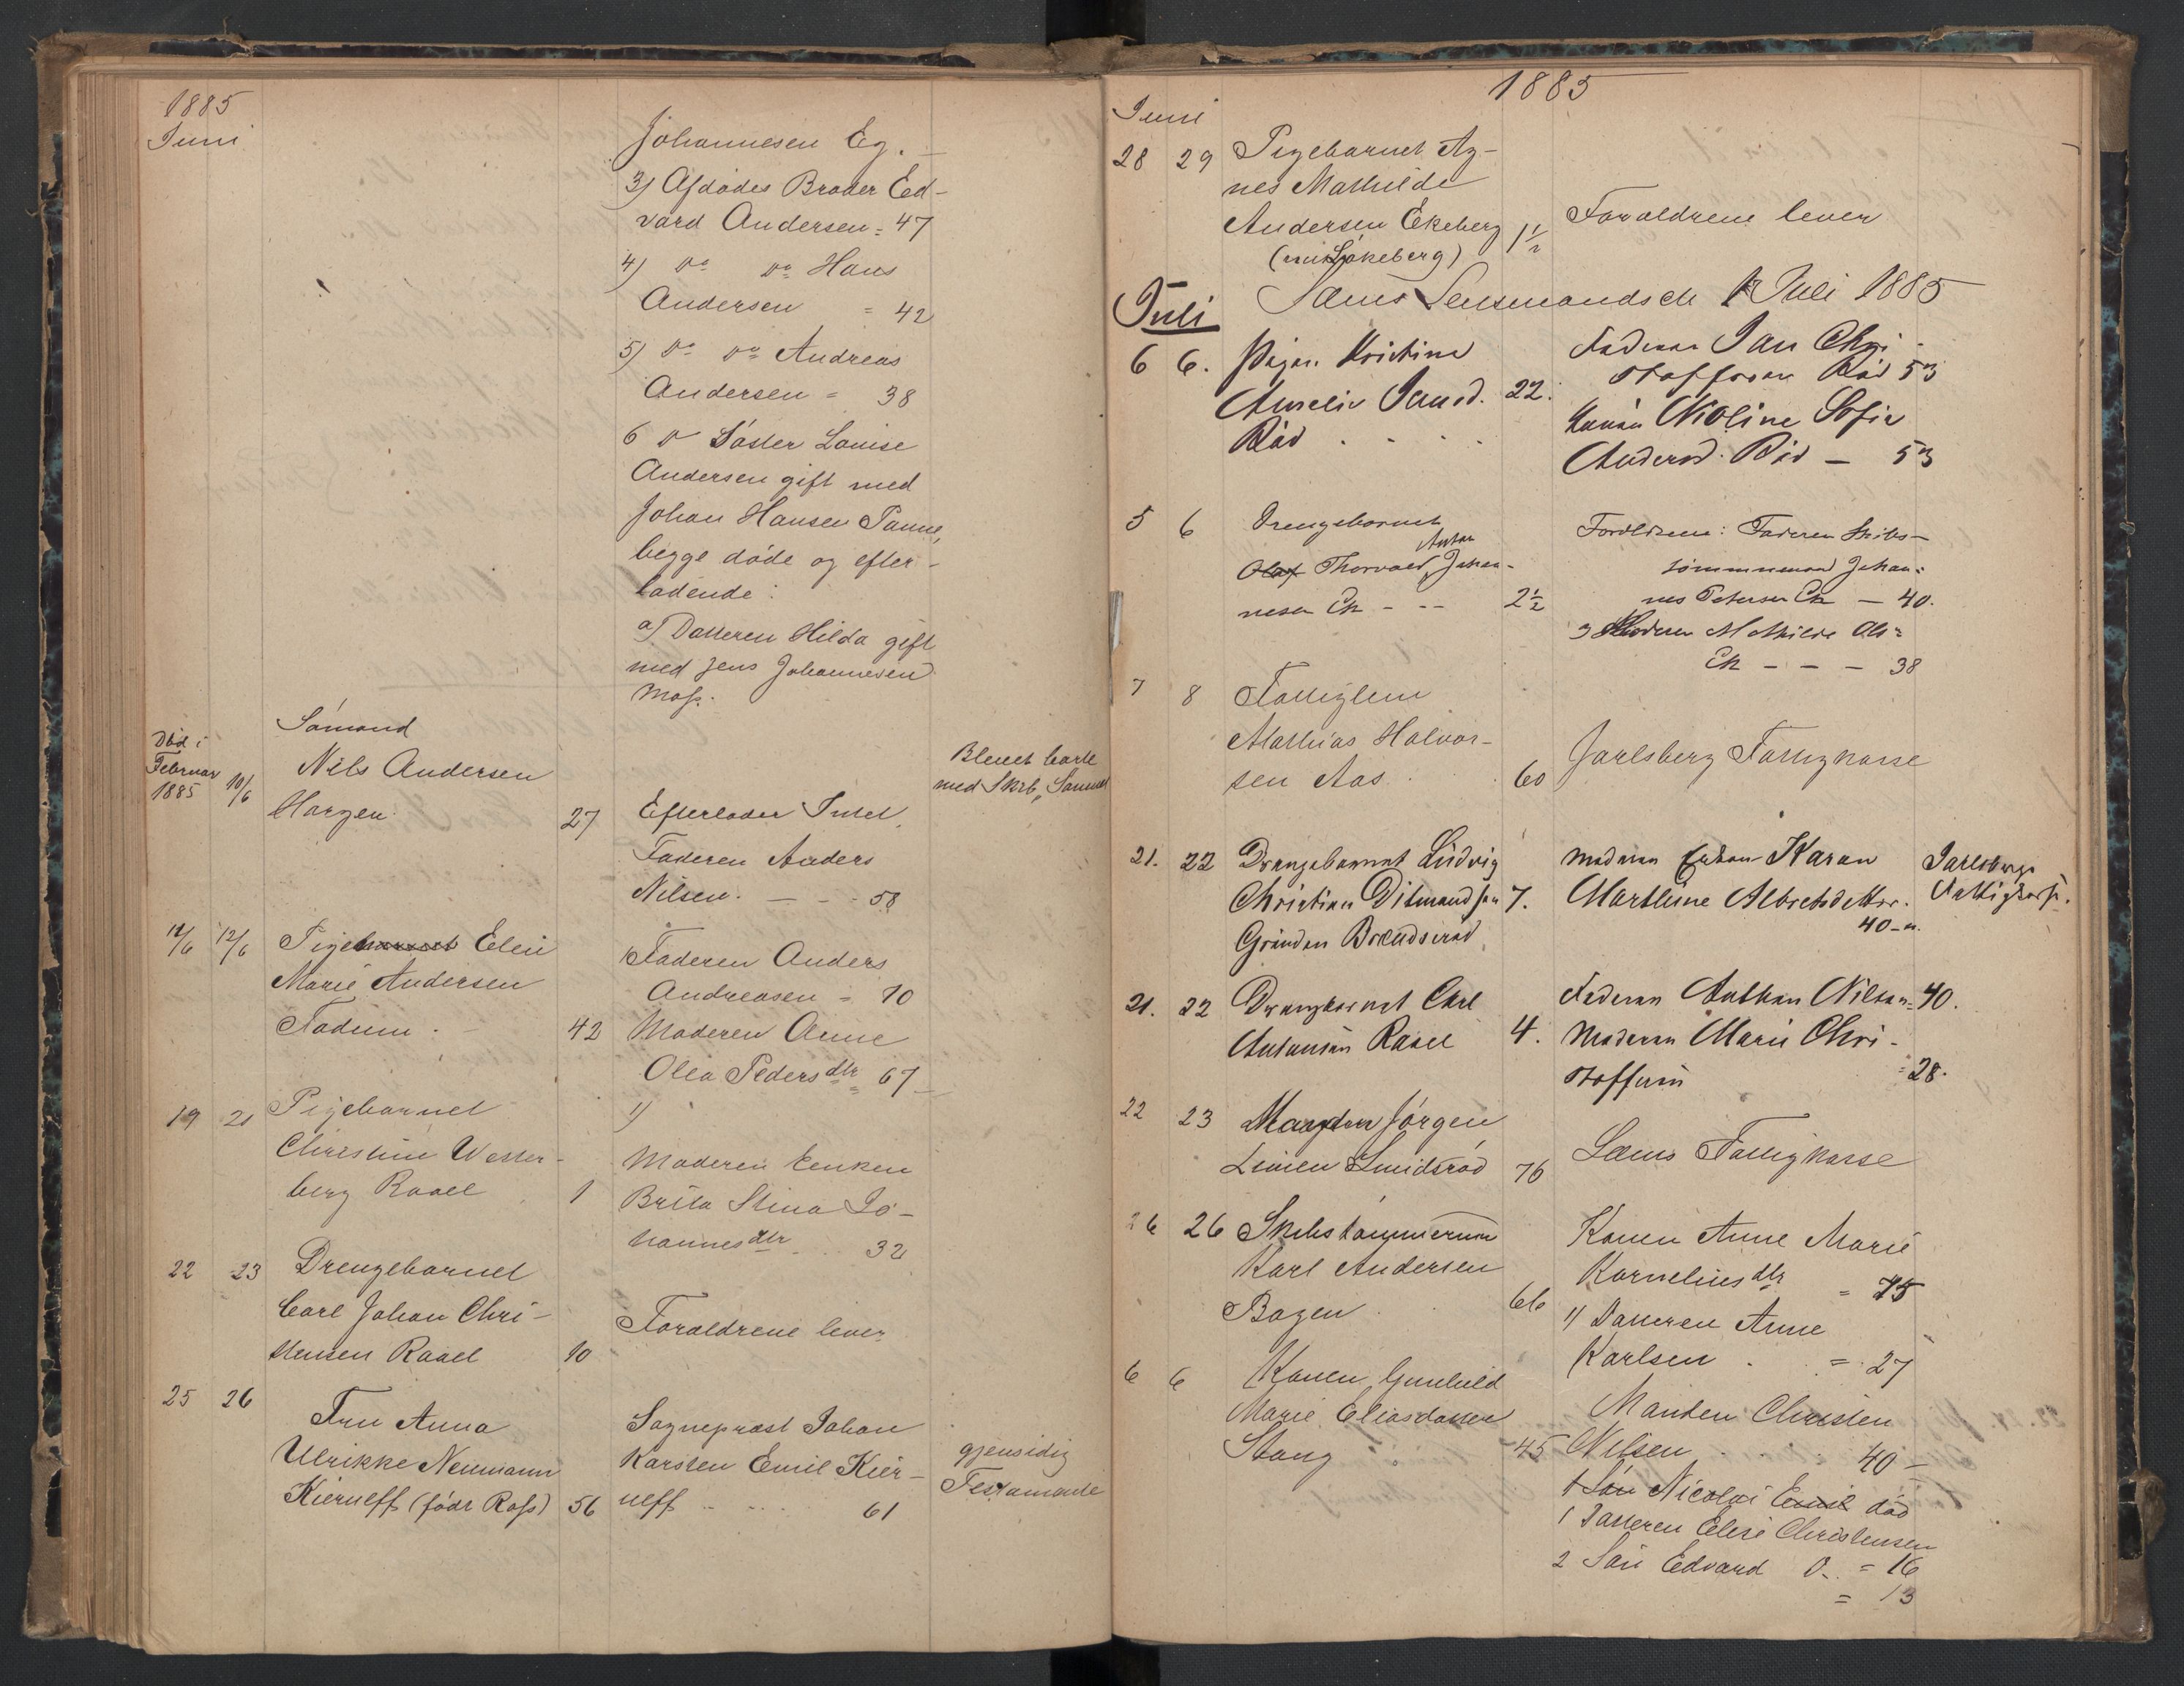 1885
Juni
Johannesen Eg.
3) Afdødes Broder Ed-
vard Andersen = 47
4) Do Do Hans
Andersen = 42
5) Do Do Andreas
Andersen = 38
6 D Søster Louise
Andersen gift med
Johan Hansen
begge døde og efter-
ladende:
a) Datteren Hilda gift
med Jens Johannesen
Moss.
Død i
Februar
1885
10/6
Sømand
Nils Andersen
Hargen 27
Efterlader Intet
Faderen Anders
Nilsen. - - - 58
Blevet borte
med Skrb,
12/6 Pigebarnet Elen
Marie Andersen
Fadum. 42
Faderen Anders
Andreasen = 70
Moderen Anne
Olea Pedersdtr = 67
19 21 Pigebarnet
Christine Wester-
berg Raael 1
1)
Moderen Enken
Brita Stina Jo-
hannesdtr 32
22 23 Drengebarnet
Carl Johan Chri-
stensen Raael 10
Forældrene lever
25 26
Fru Anna
Ulrikke Neumann
Kierulff (født Ross) 56
Sognepræst Johan
Karsten Emil Kier-
ulff 61
gjensidig
Testamente
1885
Juni
28 29 Pigebarnet Ag-
nes Mathilde
Andersen Ekeberg 1½
Forældrene lever
Sems Lensmandsd. 1 Juli 1885
Juli
6 6. Pigen Kristine
Amelie Jansd. 22.
Rød
Faderen Jan Chri-
stoffersen Rød 53
Konen Nioline Sofie
Andersd. Rød - 53
5 6 Drengebarnet
Anton
Olaf Thorvald Johan-
nesen Ek - - - 2½
Forældrene: Faderen Skibs-
tømmermand Johan-
nes Petersen Ek - 40.
Moderen Mathilde Ols-
Ek - - - 38
7 8 Fattiglem
Mathias Halvor-
sen Aas. 60
Jarlsberg Fattigkasse
21. 22 Drengebarnet Ludvig
Christian Ditmandsen 7.
Grinden Brendsrød
Moderen Enken Karen
Marthine Albretsdatter.
40 -
Jarlsbergs
Fattigkasse.
21. 22 Drengbarnet Carl
Antonsen Rael 4.
Faderen Anthon Nilsen = 40.
Moderen Marie Chri-
stoffersen = 28.
22 23 Jørgen
Smidsrød 76
Sems Fattigkasse
26 26 Skibstømmermn
Karl Andersen
Bogen 66
Konen Anne Marie
Korneliusdtr = 75
1) Datteren Anne
Karlsen = 27
6 6 Konen Gunhild
Marie Eliasdatter
Stang 45
Manden Christen
Nilsen 40 -
1 Søn Nicolai Emil død
1 Datteren Elise Christensen
2 Søn Edvard D. = 16
= 13